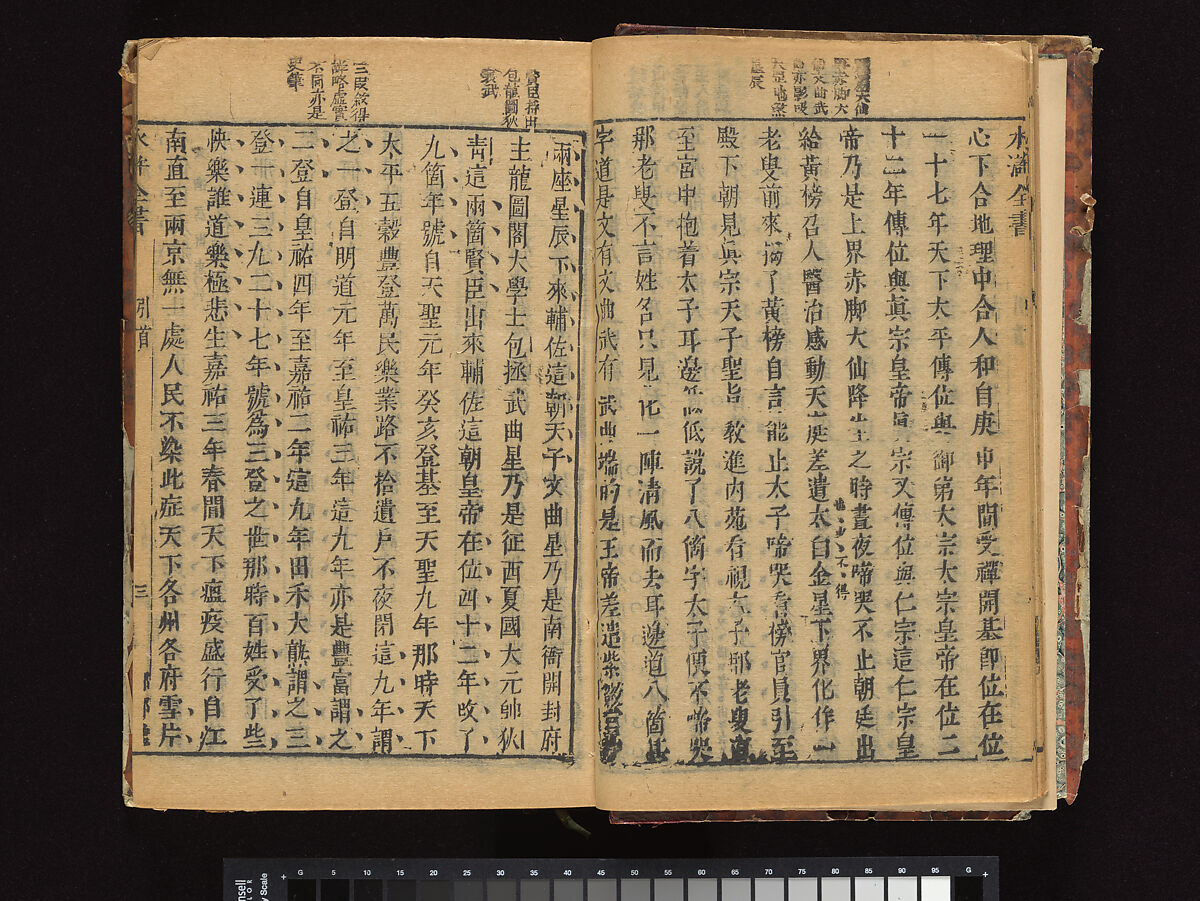 水滸全書
心下合地理中合人和自庚申年間受禪開基即位在位
一十七年天下太平傳位與御弟太宗太宗皇帝在位二
十二年傳位與真宗皇帝真宗又傳位與仁宗這仁宗皇
帝乃是上界赤脚大仙降生之時晝夜啼哭不止朝廷出
給黃榜召人醫治感動天庭差遣太白金星下界化作一
老叟前來揭了黃榜自言能止太子啼哭看榜官員引至
殿下朝見真宗天子聖旨教進內苑看視太子那老叟直
至宮中抱着太子耳邊低低說了八箇字太子便不啼哭
那老叟不言姓名只見化一陣清風而去耳邊道八箇甚
字道是文有文曲武有武曲端的是玉帝差遣紫微宮中
賢臣拈出
包龍圖狄
襄武
三段敘得
詳略虛實
不同亦是
史筆
兩座星辰下來輔佐這朝天子文曲星乃是南衙開封府
主龍圖閣大學士包拯武曲星乃是征西夏國大元帥狄
靑這兩箇賢臣出來輔佐這朝皇帝在位四十二年改了
九箇年號自天聖元年癸亥登基至天聖九年那時天下
太平五穀豐登萬民樂業路不拾遺戶不夜閉這九年謂
之一登自明道元年至皇祐三年這九年亦是豐富謂之
二登自皇祐四年至嘉祐二年這九年田禾大熟謂之三
登一連三九二十七年號爲三登之世那時百姓受了些
快樂誰道樂極悲生嘉祐三年春間天下瘟疫盛行自江
南直至兩京無一處人民不染此症天下各州各府雪片
水滸全書 引首 三